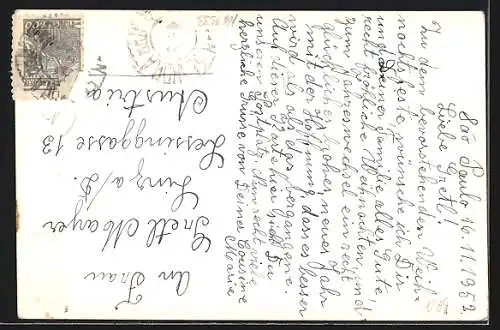 Sao Paulo 16.11.1952
Liebe Gretl!
Zu dem bevorstehenden Weih-
nachtsfeste wünsche ich Dir
und Deiner Familie alles Gute
recht fröhliche Weihnachten und
zum Jahreswechsel ein recht
glückliches frohes neues Jahr
mit der Hoffnung, dass es besser
wird als das vergangene.
Auf dieser Karte hier siehst Du
unseren Postplatz. Nun recht viele
herzliche Grüsse von Deiner Cousine
Marie
An Frau
Gretl Mayer
Linz a/D.
Lessinggasse 13
Austria